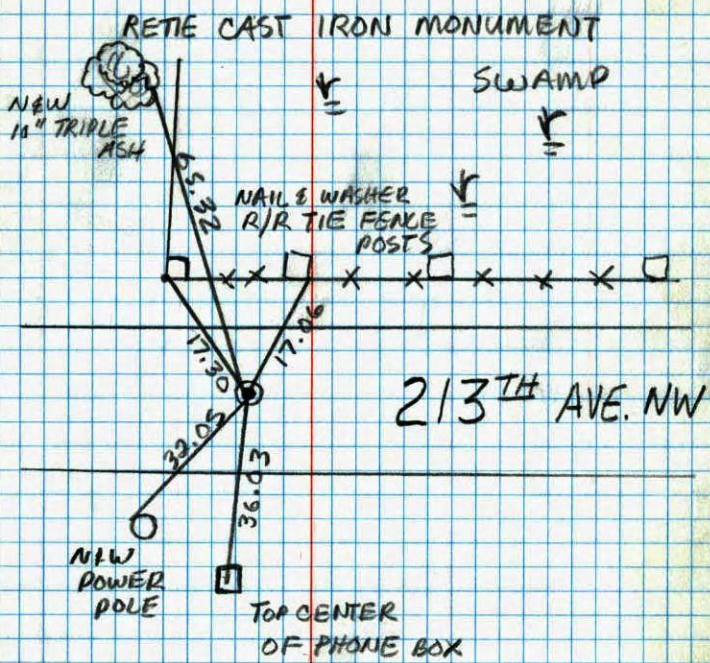 RETIE CAST IRON MONUMENT
SWAMP
N&W
10" TRIPLE
ASH
65.32
NAIL & WASHER
R/R TIE FENCE
POSTS
17.30
17.06
213TH AVE. NW
32.05
36.03
N&W
POWER
POLE
TOP CENTER
OF PHONE BOX